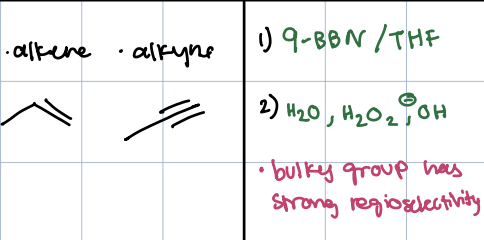 · alkene · alkyne
1) 9-BBN/THF
2) H2O, H2O2, ⊖OH
· bulky group has
strong regioselectivity